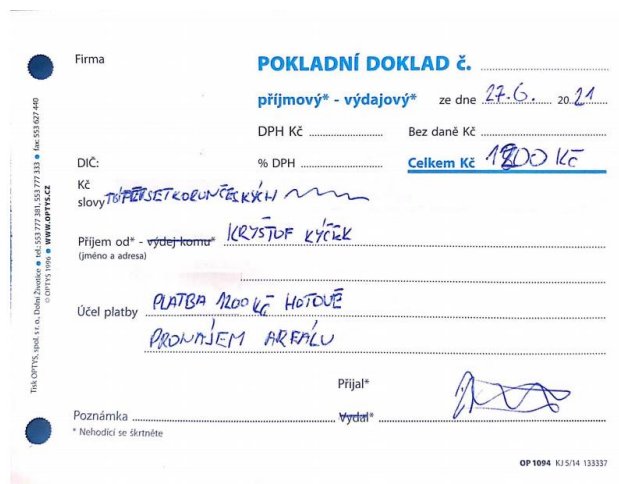 Firma
POKLADNÍ DOKLAD č.
příjmový* - výdajový* ze dne 27.6. 2021
DPH Kč Bez daně Kč
DIČ: % DPH Celkem Kč Kč
Kč
slovy SETKORUNČESKÝCH
Příjem od* - výdej komu* KRYŠTOF KYČEK
(jméno a adresa)
Účel platby PLATBA 1200 KČ HOTOVĚ
PRONÁJEM AREÁLU
Přijal*
Poznámka Vydal*
* Nehodící se škrtněte
OP 1094 KJ 5/14 133337
Tisk OPTYS, spol. s r. o., Dolní Životice • tel.: 553 777 381, 553 777 333 • fax: 553 627 440
© OPTYS 1996 • WWW.OPTYS.CZ